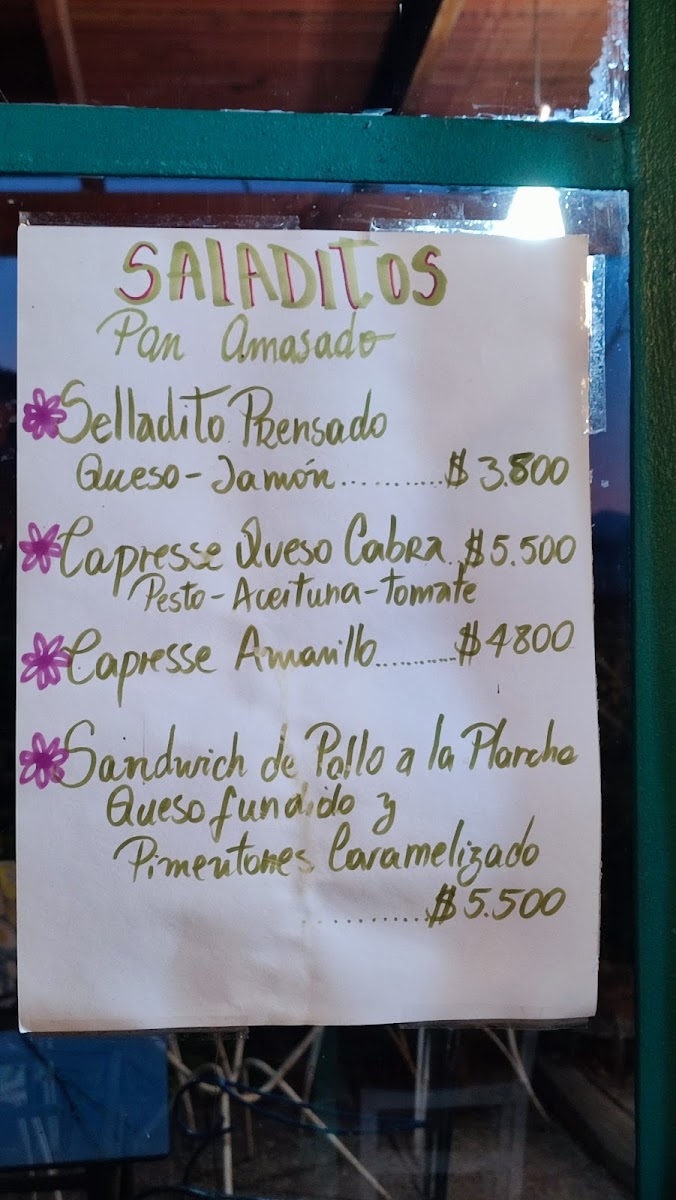 SALADITOS
Pan Amasado
Selladito Prensado
Queso - Jamón.............$ 3.800
Capresse Queso Cabra..$5.500
Pesto - Aceituna - tomate
Capresse Amarillo............$4800
Sandwich de Pollo a la Plancha
Queso fundido y
Pimentones Caramelizado
............$5.500